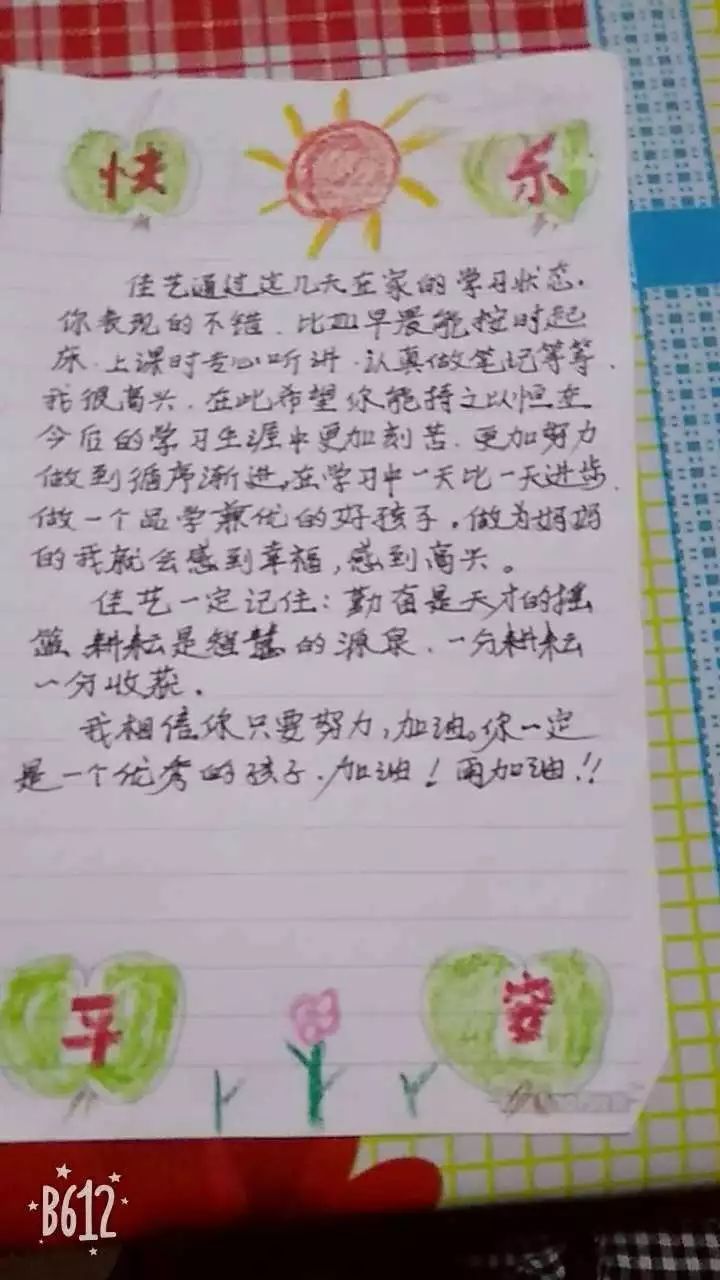 快 乐
佳艺通过这几天在家的学习状态.
你表现的不错.比如早晨能按时起
床.上课时专心听讲.认真做笔记等等.
我很高兴.在此希望你能持之以恒在
今后的学习生涯中更加刻苦.更加努力
做到循序渐进,在学习中一天比一天进步.
做一个品学兼优的好孩子.做为妈妈
的我就会感到幸福,感到高兴。
佳艺一定记住:勤奋是天才的摇
篮.耕耘是智慧的源泉.一分耕耘
一分收获.
我相信你只要努力,加油。你一定
是一个优秀的孩子.加油!再加油!!
平 安
B612